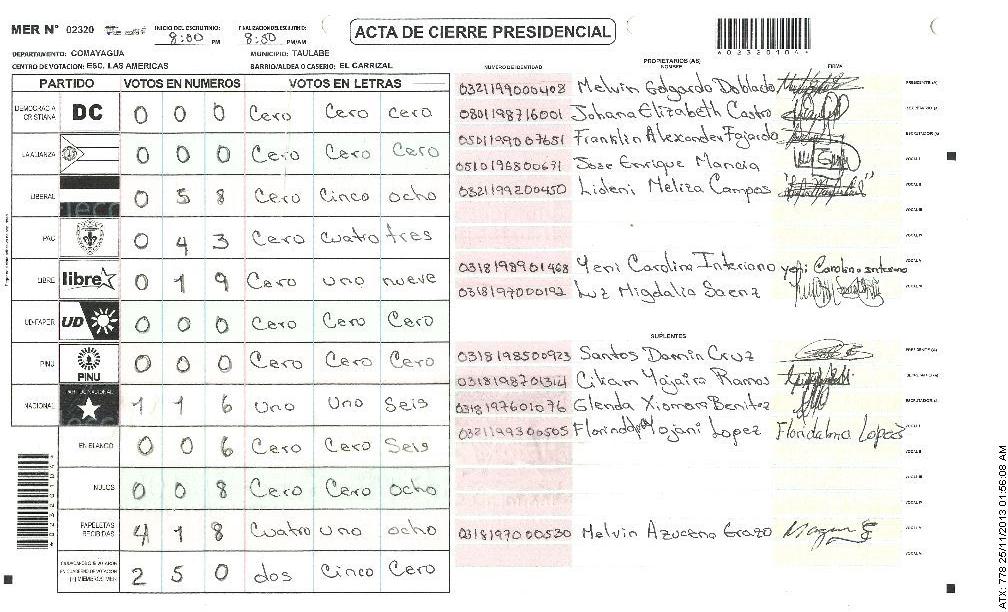 MER Nº 02320 INICIO DEL ESCRUTINIO: 8:00 PM FINALIZACION ESCRUTINIO: 8:50 PM/AM
ACTA DE CIERRE PRESIDENCIAL
4023201044
DEPARTAMENTO: COMAYAGUA MUNICIPIO: TAULABE
CENTRO DE VOTACION: ESC. LAS AMERICAS BARRIO/ALDEA O CASERIO: EL CARRIZAL
PARTIDO VOTOS EN NUMEROS VOTOS EN LETRAS
DEMOCRACIA CRISTIANA DC 0 0 0 Cero Cero Cero
LA ALIANZA 0 0 0 Cero Cero Cero
LIBERAL 0 5 8 Cero Cinco ocho
PAC 0 4 3 Cero Cuatro tres
LIBRE libre 0 1 9 Cero uno nueve
UD-FAPER UD 0 0 0 Cero Cero Cero
PINU PINU 0 0 0 Cero Cero Cero
NACIONAL 1 1 6 Uno Uno Seis
EN BLANCO 0 0 6 Cero Cero Seis
NULOS 0 0 8 Cero Cero ocho
PAPELETAS RECIBIDAS 4 1 8 Cuatro uno ocho
2 5 0 dos Cinco Cero
NUMERO DE IDENTIDAD PROPIETARIOS (AS) NOMBRE FIRMA
0321199000408 Melvin Edgardo Doblado PRESIDENTE (A)
0801198716001 Johana Elizabeth Castro SECRETARIO (A)
0501199007651 Franklin Alexander Fajardo ESCRUTADOR (A)
0510196800631 Jose Enrique Mancia VOCAL I
0321199200450 Lideni Meliza Campos VOCAL II
VOCAL III
VOCAL IV
0318198901468 Yeni Carolina Interiano yeni Carolina interiano VOCAL V
0318197000192 Luz Migdalia Saenz
SUPLENTES
0318198500923 Santos Damin Cruz PRESIDENTE (A)
Cikam Yajaira Ramos SECRETARIO (A)
0318197601076 Glenda Xiomara Benitez ESCRUTADOR (A)
0321199300505 Yojani Lopez VOCAL I
VOCAL II
VOCAL III
VOCAL IV
0318197000530 Melvin Azucena Erazo
ATX: 778 25/11/2013 01:56:08 AM